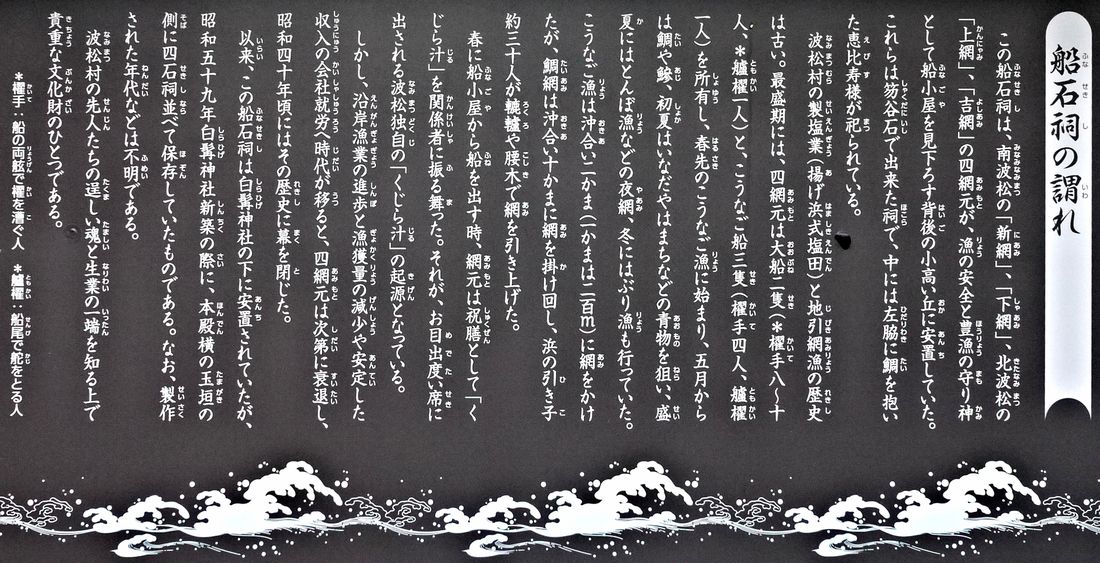 船石祠の謂れ
この船石祠は、南波松の「新網」、「下網」、北波松の
「上網」、「吉網」の四網元が、漁の安全と豊漁の守り神
として船小屋を見下ろす背後の小高い丘に安置していた。
これらは笏谷石で出来た祠で、中には左脇に鯛を抱い
た恵比寿様が祀られている。
波松村の製塩業(揚げ浜式塩田)と地引網漁の歴史
は古い。最盛期には、四網元は大船一隻(*櫂手八〜十
人、*艫櫂一人)と、こうなご船三隻(櫂手四人、艫櫂
一人)を所有し、春先のこうなご漁に始まり、五月から
は鯛や鰺、初夏はいなだやはまちなどの青物を狙い、盛
夏にはとんぼ漁などの夜網、冬にはぶり漁も行っていた。
こうなご漁は沖合い一かま(一かまは二百m)に網をかけ
たが、鯛網は沖合い十かまに網を掛け回し、浜の引き子
約三十人が轆轤や腰木で網を引き上げた。
春に船小屋から船を出す時、網元は祝膳として「く
じら汁」を関係者に振る舞った。それが、お目出度い席に
出される波松独自の「くじら汁」の起源となっている。
しかし、沿岸漁業の進歩と漁獲量の減少や安定した
収入の会社就労へ時代が移ると、四網元は次第に衰退し、
昭和四十年頃にはその歴史に幕を閉じた。
以来、この船石祠は白髭神社の下に安置されていたが、
昭和五十九年白髭神社新築の際に、本殿横の玉垣の
側に四石祠並べて保存していたものである。なお、製作
された年代などは不明である。
波松村の先人たちの逞しい魂と生業の一端を知る上で
貴重な文化財のひとつである。
*櫂手：船の両舷で櫂を漕ぐ人 *艫櫂：船尾で舵をとる人